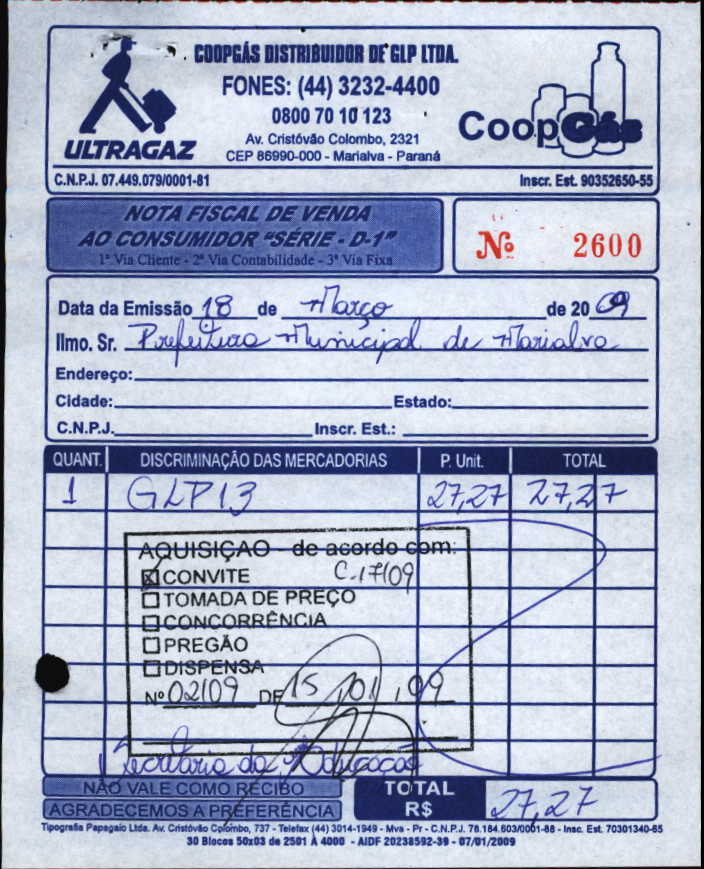 COOPGÁS DISTRIBUIDOR DE GLP LTDA.
FONES: (44) 3232-4400
0800 70 10 123
Av. Cristóvão Colombo, 2321
CEP 86990-000 - Marialva - Paraná
ULTRAGAZ
CoopGás
C.N.P.J. 07.449.079/0001-81 Inscr. Est. 90352650-55
NOTA FISCAL DE VENDA
AO CONSUMIDOR "SÉRIE - D-1"
1ª Via Cliente - 2ª Via Contabilidade - 3ª Via Fixa
Nº 2600
Data da Emissão 18 de Março de 2009
Ilmo. Sr. Prefeitura Municipal de Marialva
Endereço:
Cidade: Estado:
C.N.P.J. Inscr. Est.:
QUANT. DISCRIMINAÇÃO DAS MERCADORIAS P. Unit. TOTAL
1 GLP13 27,27 27,27
AQUISIÇÃO - de acordo com:
CONVITE C.17/09
TOMADA DE PREÇO
CONCORRÊNCIA
PREGÃO
DISPENSA
Nº 02/09 DE 15/01/09
Secretaria da Educação
NÃO VALE COMO RECIBO
AGRADECEMOS A PREFERÊNCIA
TOTAL R$ 27,27
Tipografia Papagaio Ltda. Av. Cristóvão Colombo, 737 - Telefax (44) 3014-1949 - Mva - Pr - C.N.P.J. 78.184.603/0001-88 - Insc. Est. 70301340-65
30 Blocos 50x03 de 2501 À 4000 - AIDF 20238592-39 - 07/01/2009